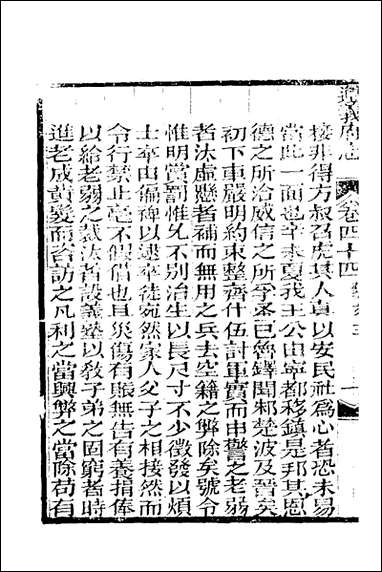 遵義府志 卷四十四 藝文三
接非得方叔召虎其人真以安民社為心者恐未易
當此一面也辛未夏我王公由寧都移鎮是邦其恩
德之所洽威信之所孚蓋已魯鐸聞邾楚波及晉矣
初下車嚴明約束整齊什伍討軍實而申警之老弱
者汰虛懸者補而無用之兵去空籍之弊除矣號令
惟明賞罰惟允不別治生以長尺寸不少徵發以煩
士卒由偏裨以逮卒徒宛然家人父子之相接然而
令行禁止毫不假借也且災傷有賑無告有養捐俸
以給老弱之裁汰者設義塾以敎子弟之固窮者時
進老成黃髮而咨訪之凡利之當興弊之當除苟有